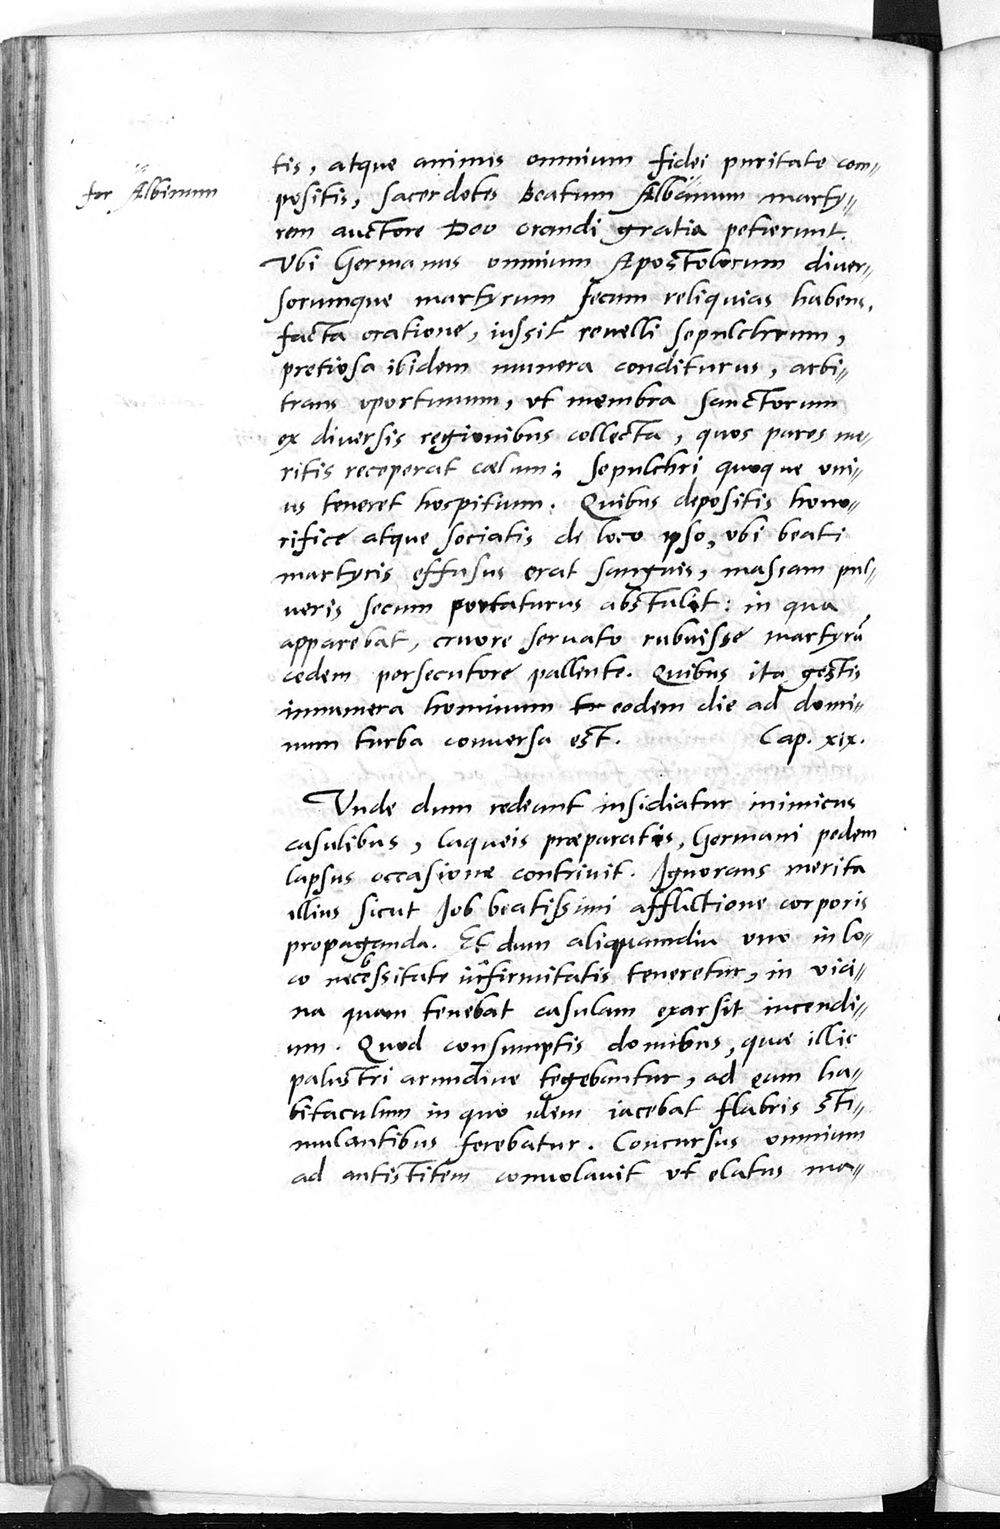 for Albinum
tis, atque animis omnium fidei puritate com=
positis, sacerdotes beatum Albanum marty=
rem auctore Deo orandi gratia petierunt.
Vbi Germanus omnium Apostolorum diuer=
sorumque martyrum secum reliquias habens,
facta oratione, iussit reuelli sepulchrum,
pretiosa ibidem munera conditurus, arbi=
trans oportunum, vt membra sanctorum
ex diuersis regionibus collecta, quos pares me=
ritis receperat cælum; sepulchri quoque vni=
us teneret hospitium. Quibus depositis hono=
rifice atque sociatis de loco ipso, vbi beati
martyris effusus erat sanguis, massam pul=
ueris secum portaturus abstulit: in qua
apparebat, cruore seruato rubuisse martyrũ
cedem persecutore pallente. Quibus ita gestis
innumera hominum eodem die ad domi=
num turba conuersa est. Cap. xix.
Vnde dum redeant insidiatur inimicus
casulibus, laqueis præparatis, Germani pedem
lapsus occasione contriuit. Ignorans merita
illius sicut Job beatissimi afflictione corporis
propaganda. Et dum aliquamdiu vno in lo=
co necessitate infirmitatis teneretur, in vici=
na quam tenebat casulam exarsit incendi=
um. Quod consumptis domibus, quæ illic
palustri arundine tegebantur, ad eam ha=
bitaculum in quo idem iacebat flabris sti=
mulantibus ferebatur. Concursus omnium
ad antistitem conuolauit vt elatus ma=